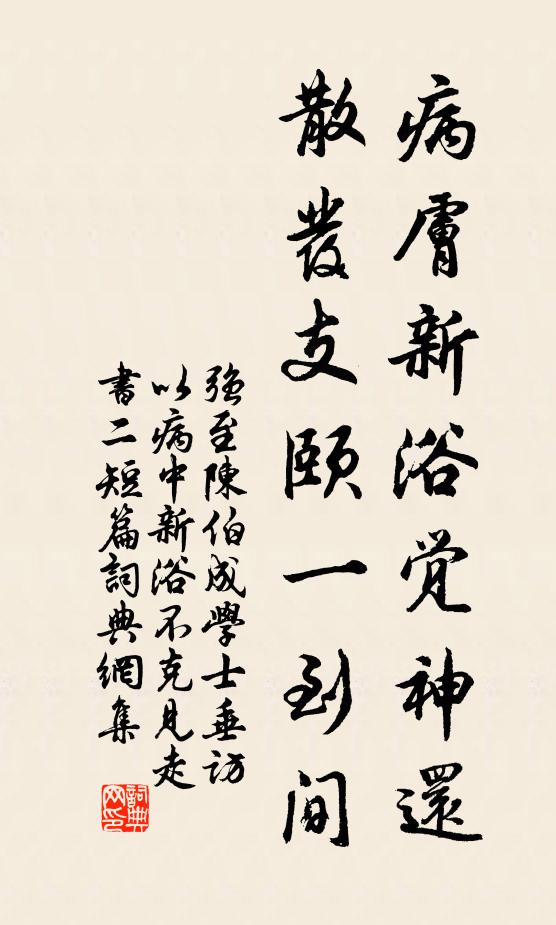 病膚新浴覚神還
散發支頤一到間
強至陳伯成學士垂訪
以病中新浴不克見走
書二短篇詞典網集
詞典网印